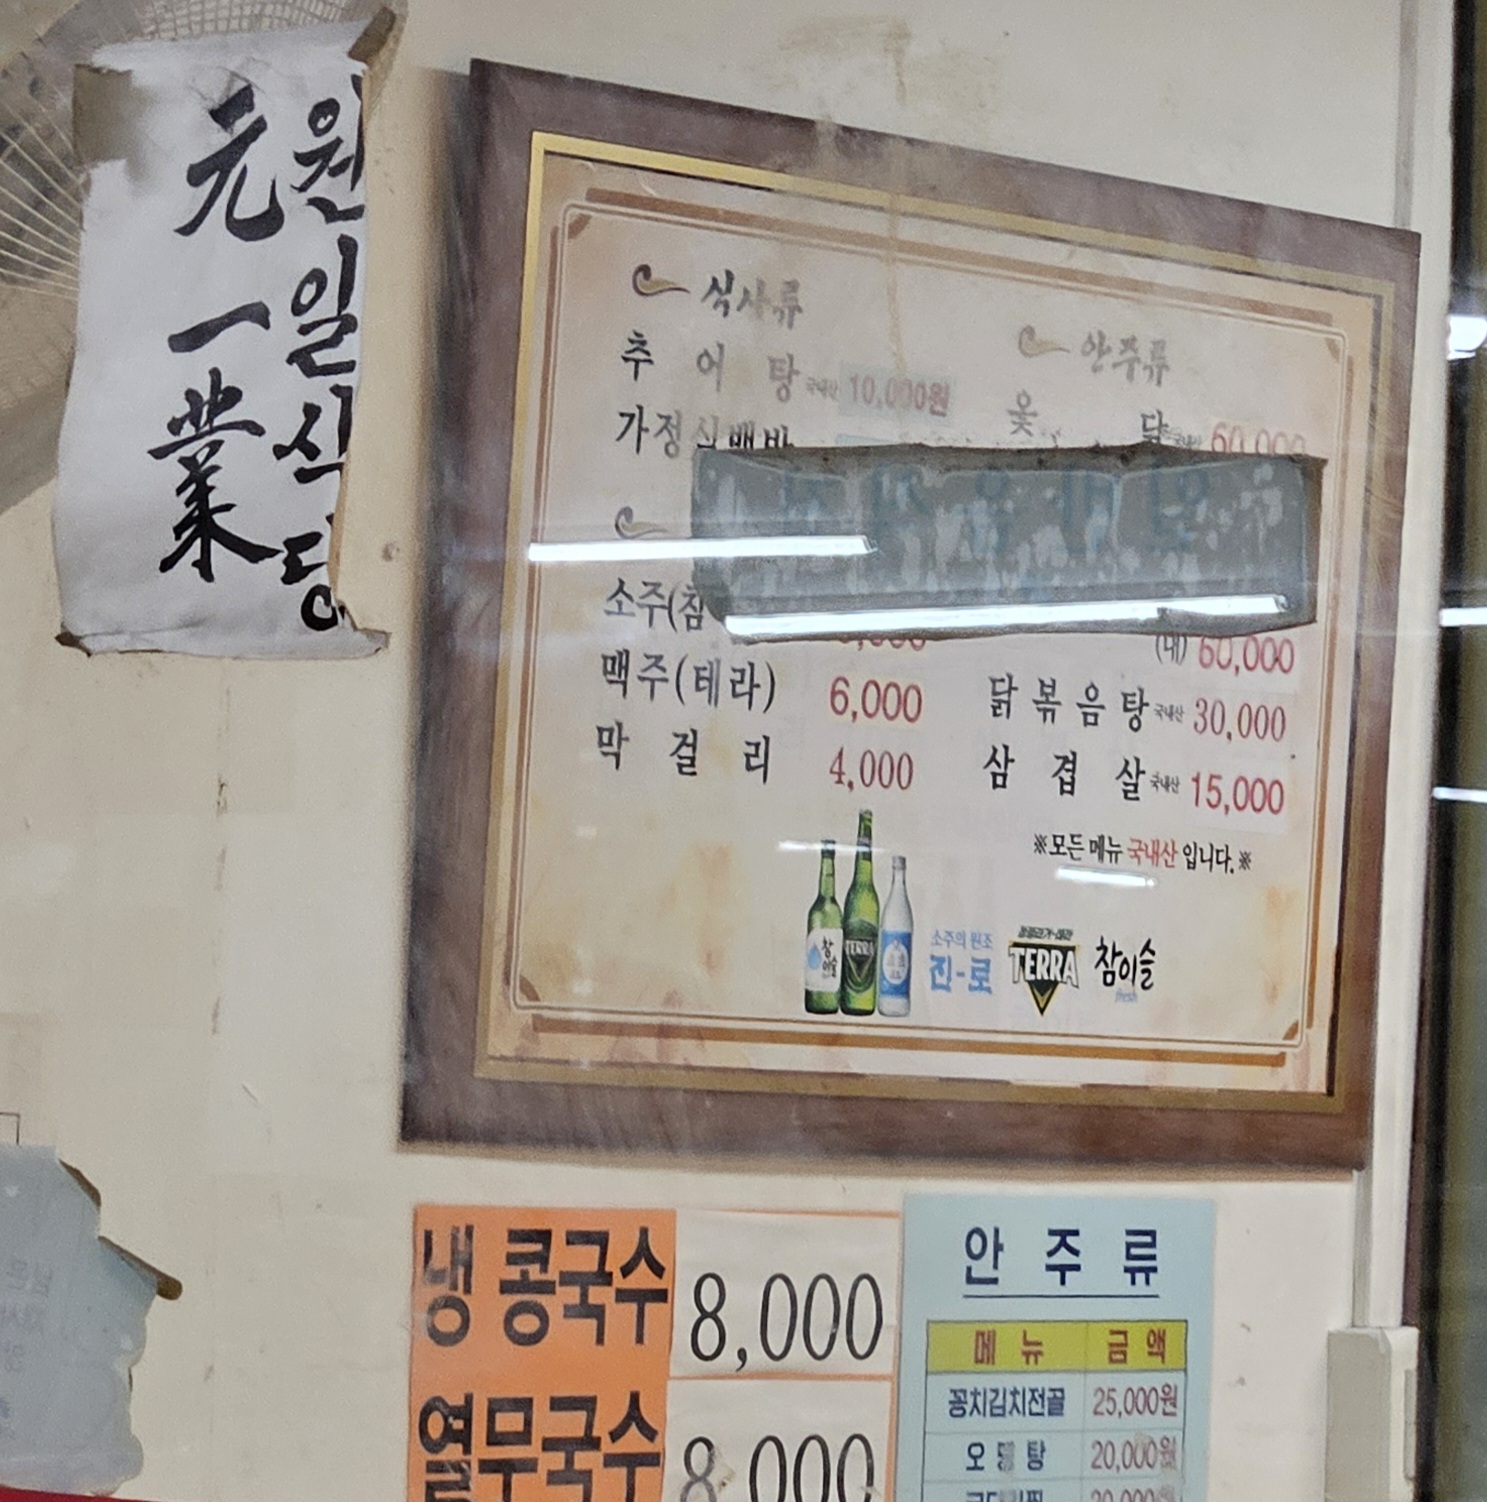 元 一 業
원일식당
식사류
추 어 탕 국내산 10,000원
가정식백반
소주(참
맥주(테라) 6,000
막 걸 리 4,000
안주류
옻 닭 국내산 60,000
(대) 60,000
닭 볶 음 탕 국내산 30,000
삼 겹 살 국내산 15,000
※모든 메뉴 국내산 입니다.※
참이슬
TERRA
소주의 원조
진-로
TERRA
참이슬
fresh
냉 콩국수 8,000
열무국수 8,000
안 주 류
메 뉴 금 액
꽁치김치전골 25,000원
오 뎅 탕 20,000원